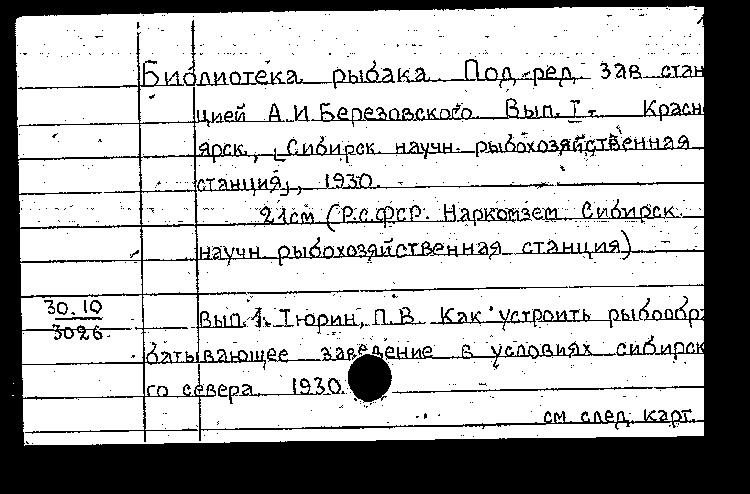 Библиотека рыбака Под ред. зав стан
цией А.И.Березовского Вып. I - Красн
ярск, [Сибирск. научн. рыбохозяйственная
станция], 1930.
21см (Р.С.ФСР. Наркомзем Сибирск.
научн рыбохозяйственная станция) -
30.10
3026
Вып.1. Тюрин, П.В Как устроить рыбообр
батывающее заведение в условиях сибирск
го севера 1930.
см. след. карт.